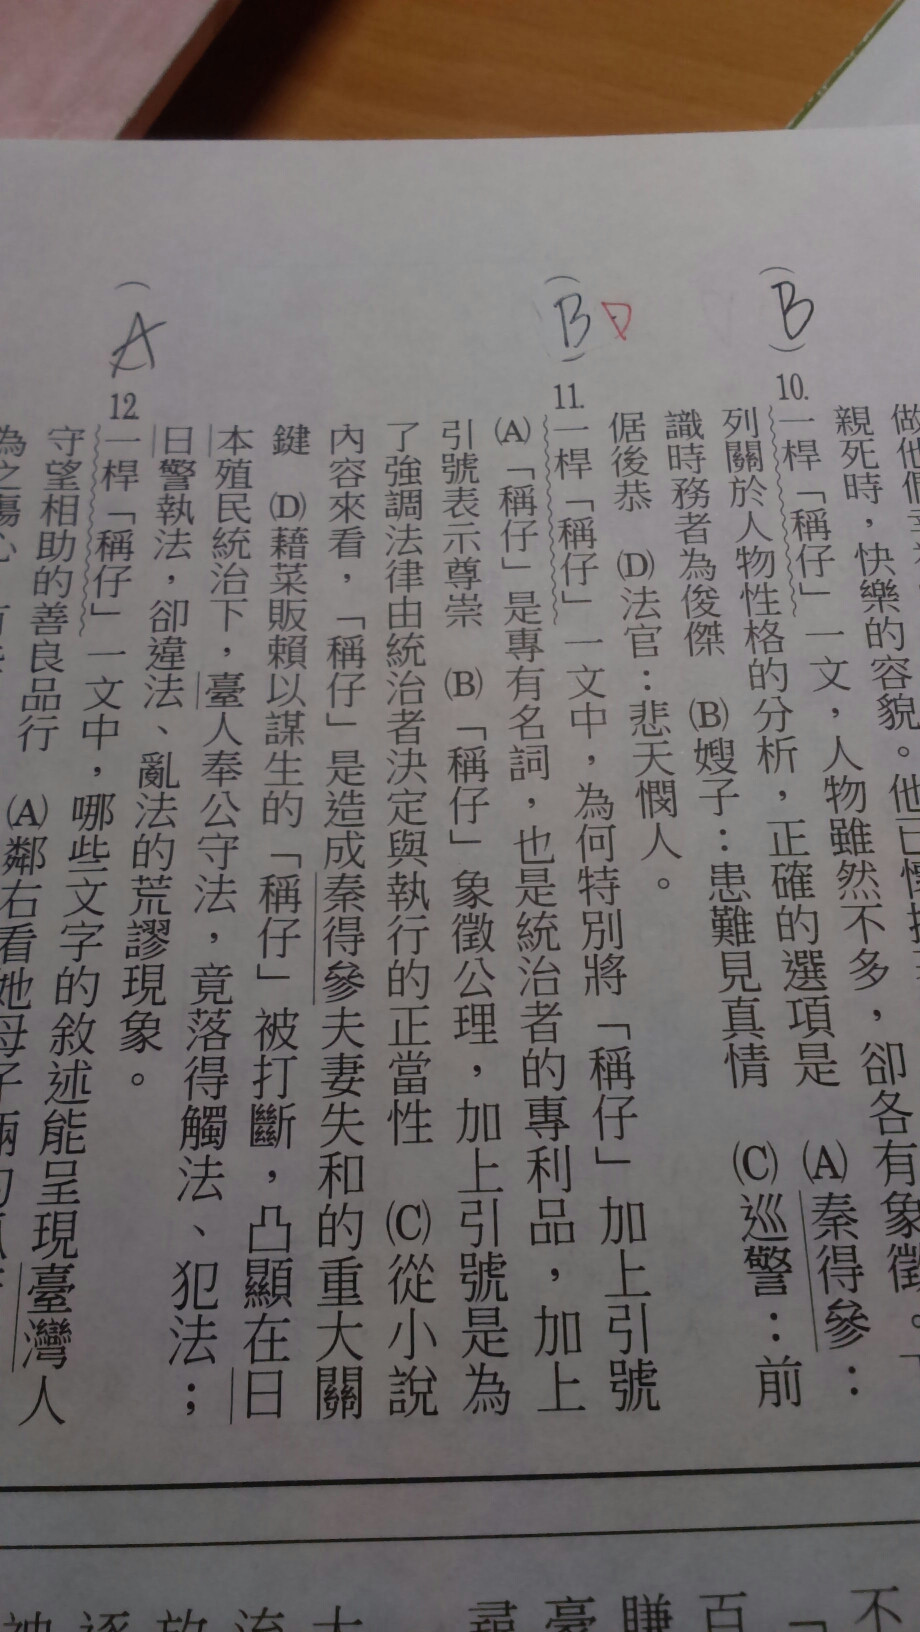 親死時，快樂的容貌。他已懷
(B) 10. 一桿「稱仔」一文，人物雖然不多，卻各有象徵。下
列關於人物性格的分析，正確的選項是　(A)秦得參：
識時務者為俊傑　(B)嫂子：患難見真情　(C)巡警：前
倨後恭　(D)法官：悲天憫人。
(B) D 11. 一桿「稱仔」一文中，為何特別將「稱仔」加上引號
(A)「稱仔」是專有名詞，也是統治者的專利品，加上
引號表示尊崇　(B)「稱仔」象徵公理，加上引號是為
了強調法律由統治者決定與執行的正當性　(C)從小說
內容來看，「稱仔」是造成秦得參夫妻失和的重大關
鍵　(D)藉菜販賴以謀生的「稱仔」被打斷，凸顯在日
本殖民統治下，臺人奉公守法，竟落得觸法、犯法；
日警執法，卻違法、亂法的荒謬現象。
( A 12. 一桿「稱仔」一文中，哪些文字的敘述能呈現臺灣人
守望相助的善良品行　(A)鄰右看她母子倆的
為之傷心
不
百
賺
毫
尋
大
流
放
逐